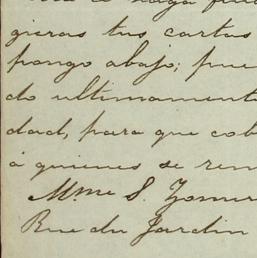 gieras tus cartas
pongo abajo; pue
do ultimamente
dad, para que cob
á quienes se rem
Mme S.
Rue du Jardin